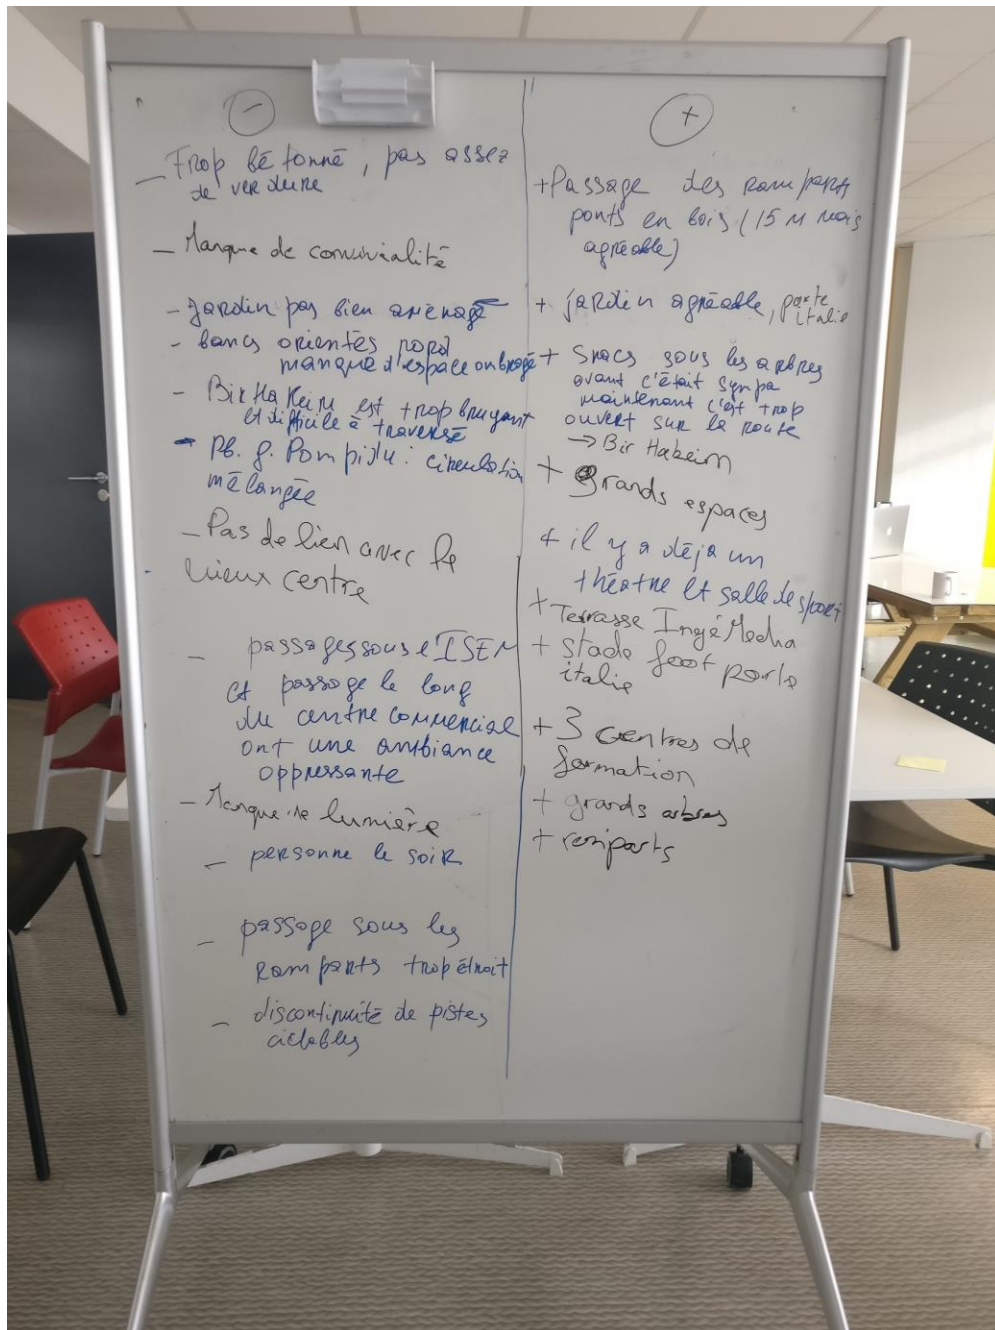 -
_ Trop bétonné, pas assez
de verdure
- Manque de convivialité
- Jardin pas bien aménagé
- bancs orientés nord
manque d'espace ombragé
- Bir Hakeim est trop bruyant
et difficile à traversé
- Pb. g. Pompidu : circulation
mélangée
- Pas de lien avec le
vieux centre
- passages sous l'ISEN
et passage le long
du centre commercial
ont une ambiance
oppressante
- Manque de lumière
- personne le soir
- passage sous les
remparts trop étroit
- discontinuité de pistes
ciclables
+
+ Passage des remparts
ponts en bois (15 M mais
agréable)
+ jardin agréable, porte
italie
+ Snacs sous les arbres
avant c'était sympa
maintenant c'est trop
ouvert sur la route
→ Bir Hakeim
+ grands espaces
+ il y a déja un
théatre et salle de sport
+ Terrasse IngéMedia
+ Stade foot porte
italie
+ 3 centres de
formation
+ grands arbres
+ remparts